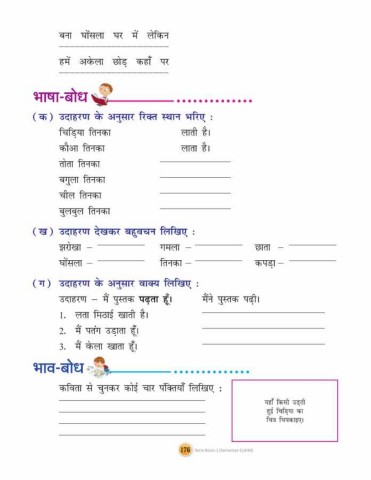 बना घोंसला घर में लेकिन
हमें अकेला छोड़ कहाँ पर
भाषा-बोध
(क) उदाहरण के अनुसार रिक्त स्थान भरिए :
चिड़िया तिनका लाती है।
कौआ तिनका लाता है।
तोता तिनका
बगुला तिनका
चील तिनका
बुलबुल तिनका
(ख) उदाहरण देखकर बहुवचन लिखिए :
झरोखा – गमला – छाता –
घोंसला – तिनका – कपड़ा –
(ग) उदाहरण के अनुसार वाक्य लिखिए :
उदाहरण – मैं पुस्तक पढ़ता हूँ। मैंने पुस्तक पढ़ी।
1. लता मिठाई खाती है।
2. मैं पतंग उड़ाता हूँ।
3. मैं केला खाता हूँ।
भाव-बोध
कविता से चुनकर कोई चार पंक्तियाँ लिखिए :
यहाँ किसी उड़ती
हुई चिड़िया का
चित्र चिपकाइए।
176